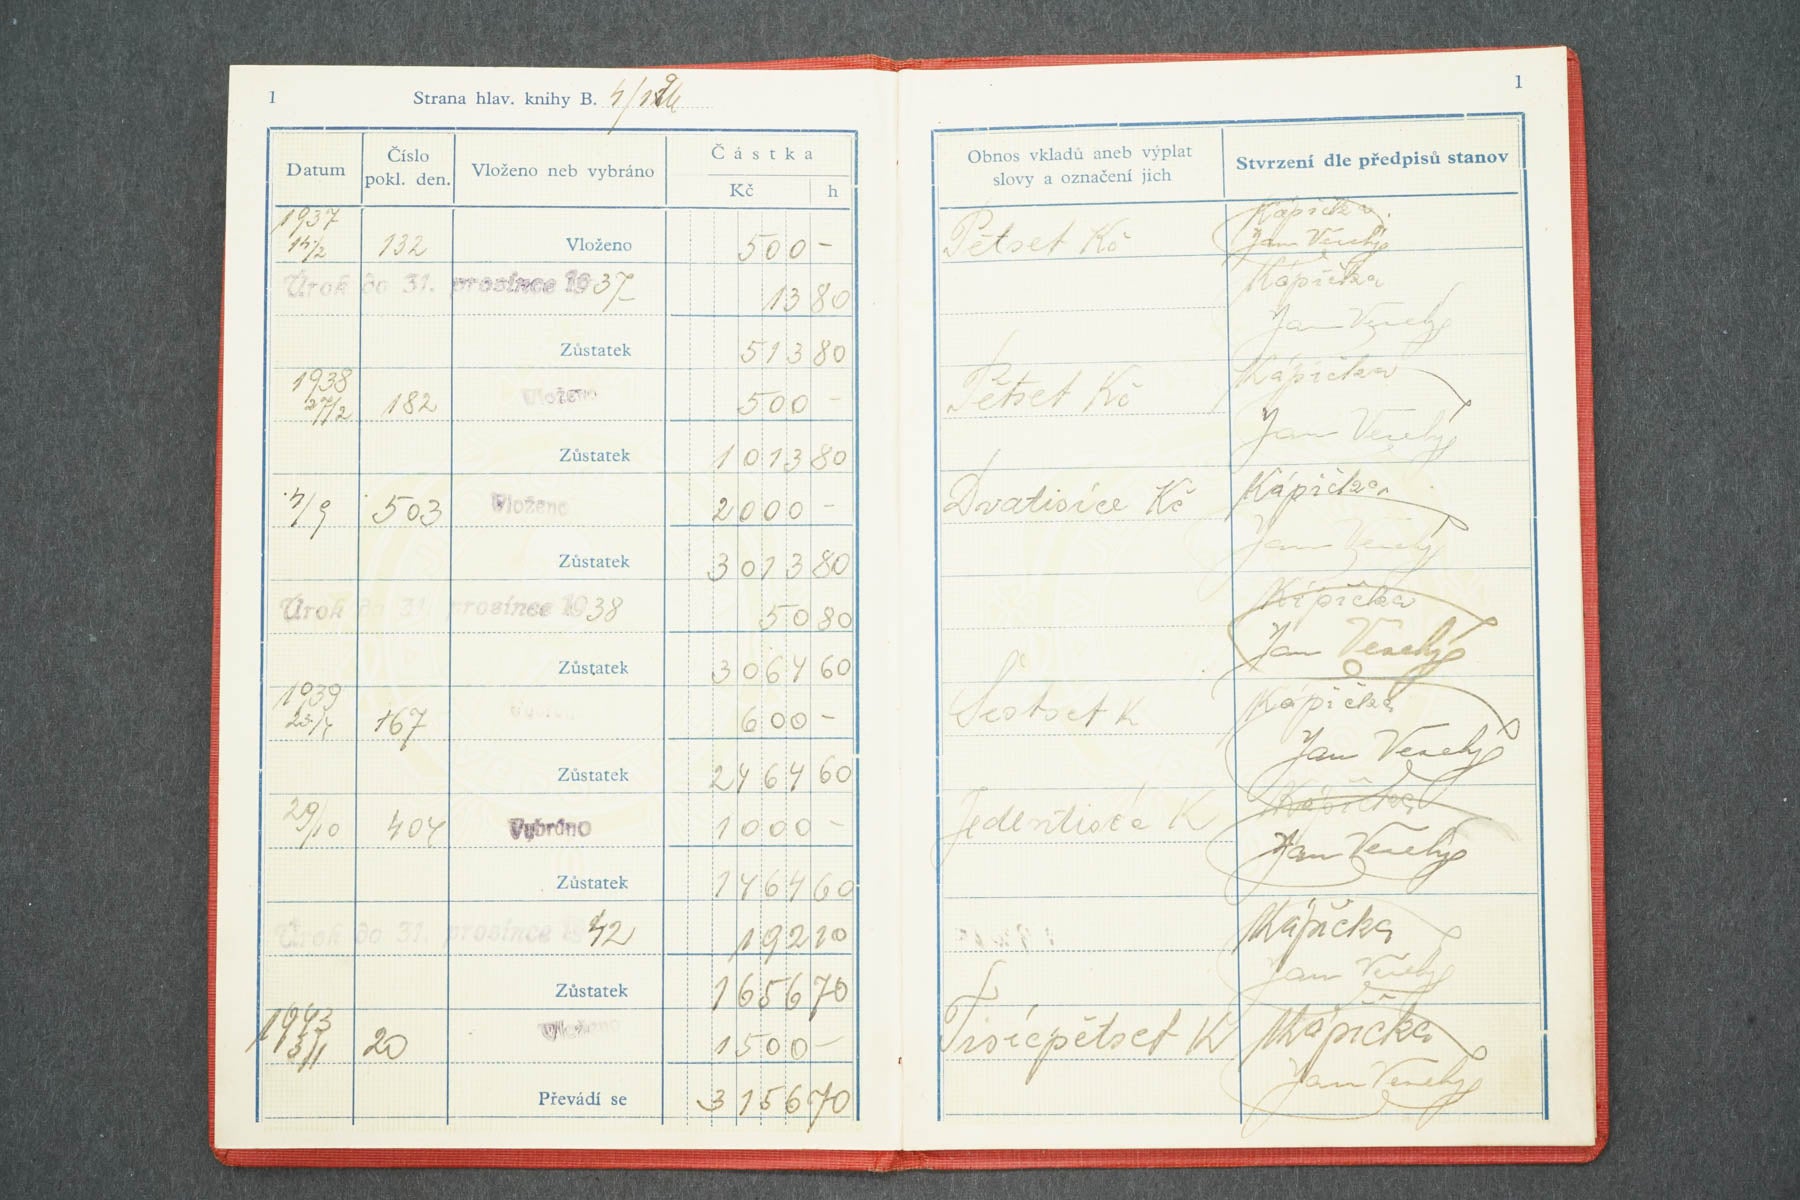 1 Strana hlav. knihy B. 1
Datum Číslo pokl. den. Vloženo neb vybráno Částka Kč h Obnos vkladů aneb výplat slovy a označení jich Stvrzení dle předpisů stanov
1937 132 Vloženo 500 – Pětset Kč Kápička
Jan Veselý
Úrok do 31. prosince 1937 13 80 Kápička
Zůstatek 513 80 Jan Veselý
1938
27/2 182 Vloženo 500 – Pětset Kč Kápička
Zůstatek 1013 80 Jan Veselý
4/9 503 Vloženo 2000 – Dvatisíce Kč Kápička
Zůstatek 3013 80 Jan Veselý
Úrok do 31. prosince 1938 50 80 Kápička
Zůstatek 3064 60 Jan Veselý
1939 167 600 – Šestset K Kápička
Zůstatek 2464 60 Jan Veselý
29/10 404 Vybráno 1000 – Jedentisíc K Kápička
Zůstatek 1464 60 Jan Veselý
Úrok do 31. prosince 1942 192 10 Kápička
Zůstatek 1656 70 Jan Veselý
1943
3/1 20 Vloženo 1500 – Tisícpětset K Kápička
Převádí se 3156 70 Jan Veselý